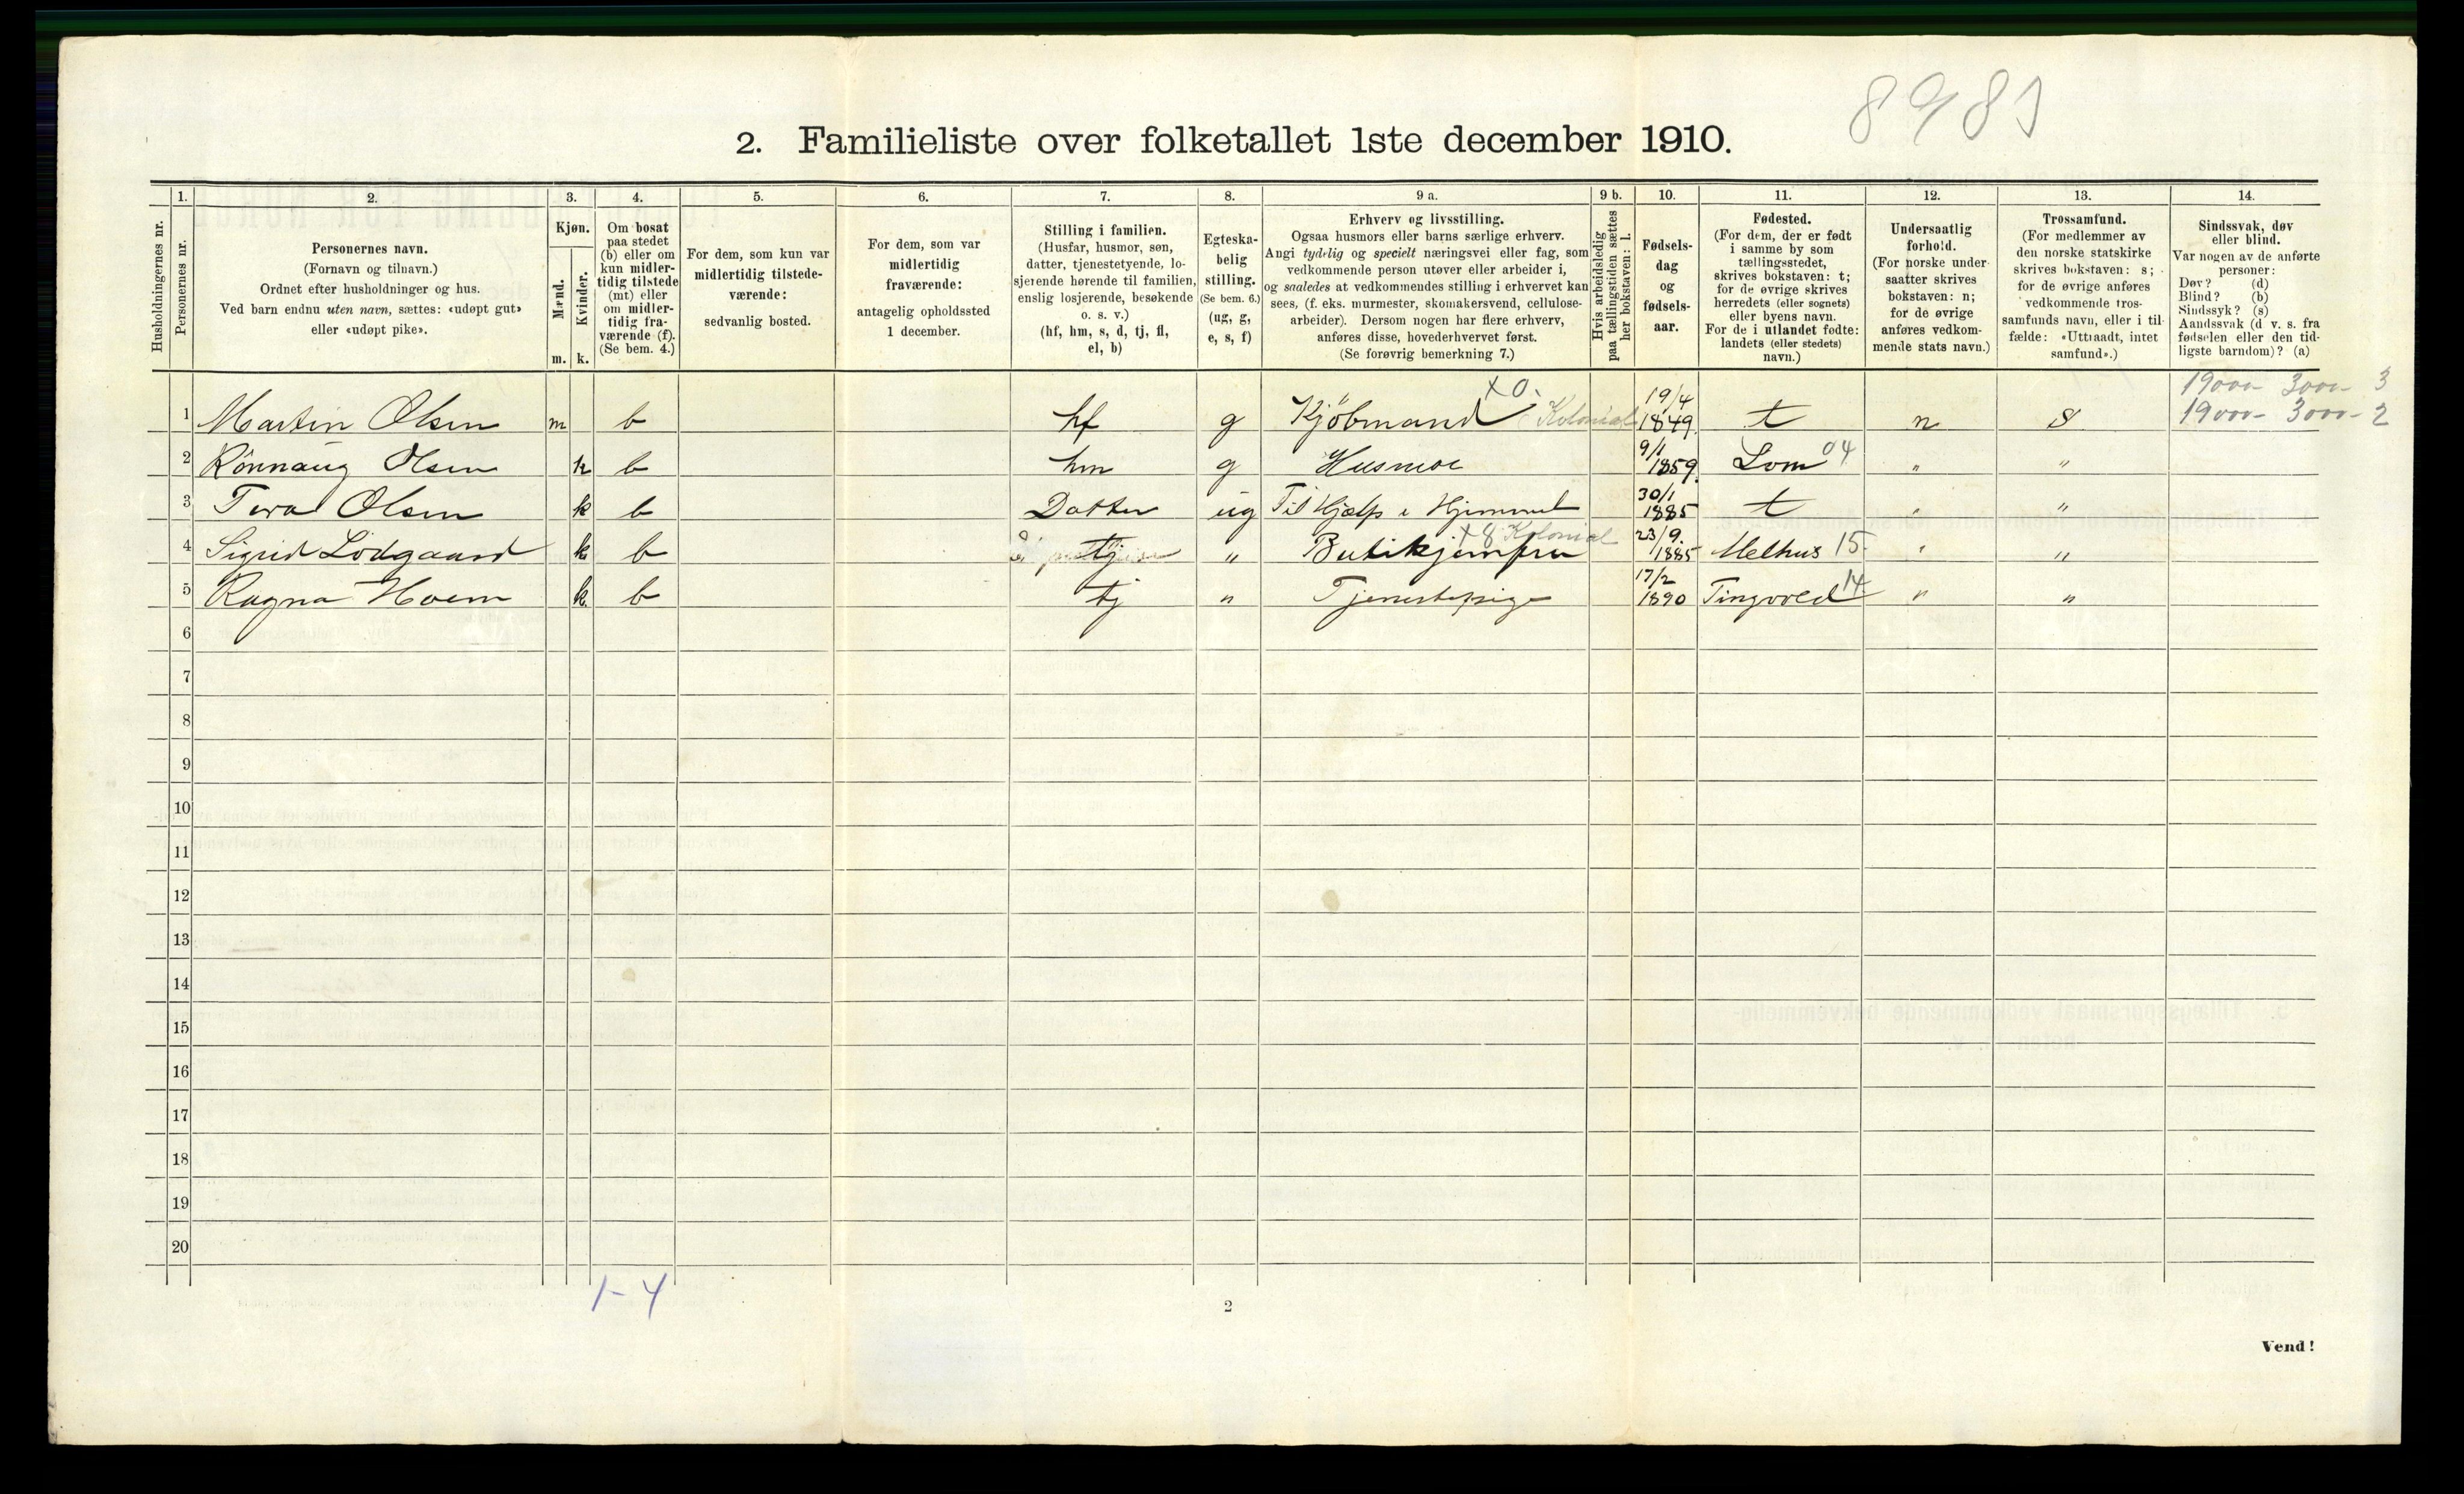 8981
2. Familieliste over folketallet 1ste december 1910.
Husholdningernes nr.
1.
Personernes nr.
2.
Personernes navn.
(Fornavn og tilnavn.)
Ordnet efter husholdninger og hus.
Ved barn endnu uten navn, sættes: «udøpt gut»
eller «udøpt pike».
3.
Kjøn.
Mænd.
Kvinder.
m. k.
4.
Om bosat
paa stedet
(b) eller om
kun midler-
tidig tilstede
(mt) eller
om midler-
tidig fra-
værende (f).
(Se bem. 4.)
5.
For dem, som kun var
midlertidig tilstede-
værende:
sedvanlig bosted.
6.
For dem, som var
midlertidig
fraværende:
antagelig opholdssted
1 december.
7.
Stilling i familien.
(Husfar, husmor, søn,
datter, tjenestetyende, lo-
sjerende hørende til familien,
enslig losjerende, besøkende
o. s. v.)
(hf, hm, s, d, tj, fl,
el, b)
8.
Egteska-
belig
stilling.
(Se bem. 6.)
(ug, g,
e, s, f)
9 a.
Erhverv og livsstilling.
Ogsaa husmors eller barns særlige erhverv.
Angi tydelig og specielt næringsvei eller fag, som
vedkommende person utøver eller arbeider i,
og saaledes at vedkommendes stilling i erhvervet kan
sees, (f. eks. murmester, skomakersvend, cellulose-
arbeider). Dersom nogen har flere erhverv,
anføres disse, hovederhvervet først.
(Se forøvrig bemerkning 7.)
9 b.
Hvis arbeidsledig
paa tællingstiden sættes
her bokstaven: l.
10.
Fødsels-
dag
og
fødsels-
aar.
11.
Fødested.
(For dem, der er født
i samme by som
tællingsstedet,
skrives bokstaven: t;
for de øvrige skrives
herredets (eller sognets)
eller byens navn.
For de i utlandet fødte:
landets (eller stedets)
navn.)
12.
Undersaatlig
forhold.
(For norske under-
saatter skrives
bokstaven: n;
for de øvrige
anføres vedkom-
mende stats navn.)
13.
Trossamfund.
(For medlemmer av
den norske statskirke
skrives bokstaven: s;
for de øvrige anføres
vedkommende tros-
samfunds navn, eller i til-
fælde: «Uttraadt, intet
samfund».)
14.
Sindssvak, døv
eller blind.
Var nogen av de anførte
personer:
Døv? (d)
Blind? (b)
Sindssyk? (s)
Aandssvak (d. v. s. fra
fødselen eller den tid-
ligste barndom)? (a)
19000- 3000- 3
1 Martin Olsen m b hf g Kjöbmand x0. Kolonial 19/4 1849. t n S 19000- 3000- 2
2 Rönnaug Olsen k b hm g Husmor 9/1 1859. Lom 04 " "
3 Tora Olsen k b Datter ug Til Hjælp i Hjemmet 30/1 1885 t " "
4 Sigrid Lödgaard k b tj " Butikjomfru x8 Kolonial 23/9. 1885 Melhus 15. " "
5 Ragna Hoem k. b tj " Tjenestepige 17/2 1890 Tingvold 14. " "
6
7
8
9
10
11
12
13
14
15
16
17
18
19
20
1-4
2
Vend!